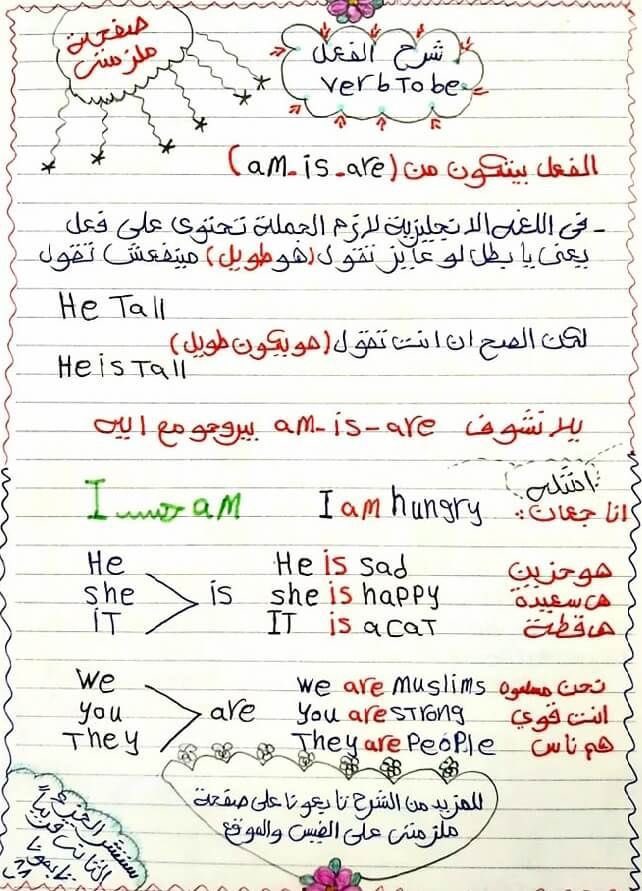 صفحة
ملزمتى
شرح الفعل
verb To be
الفعل بيتكون من (am-is-are)
- فى اللغه الانجليزية لازم الجملة تحتوى على فعل
يعنى يا بطل لو عايز تقول (هو طويل) مينفعش تقول
He Tall
لكن الصح ان انت تقول (هو يكون طويل)
He is Tall
يلا نشوف am-is-are بيروحو مع اليه
امثله
I am I am hungry انا جعان:
He He is sad هو حزين
she is she is happy هى سعيدة
iT IT is a caT ها قطة
We We are Muslims نحن مسلمون
you are you are sTrong انت قوي
They They are PeoPle هم ناس
للمزيد من الشرح تابعونا على صفحة
ملزمتى على الفيس والموقع
سننشر الجزء
الثانى قريباً
تابعونا